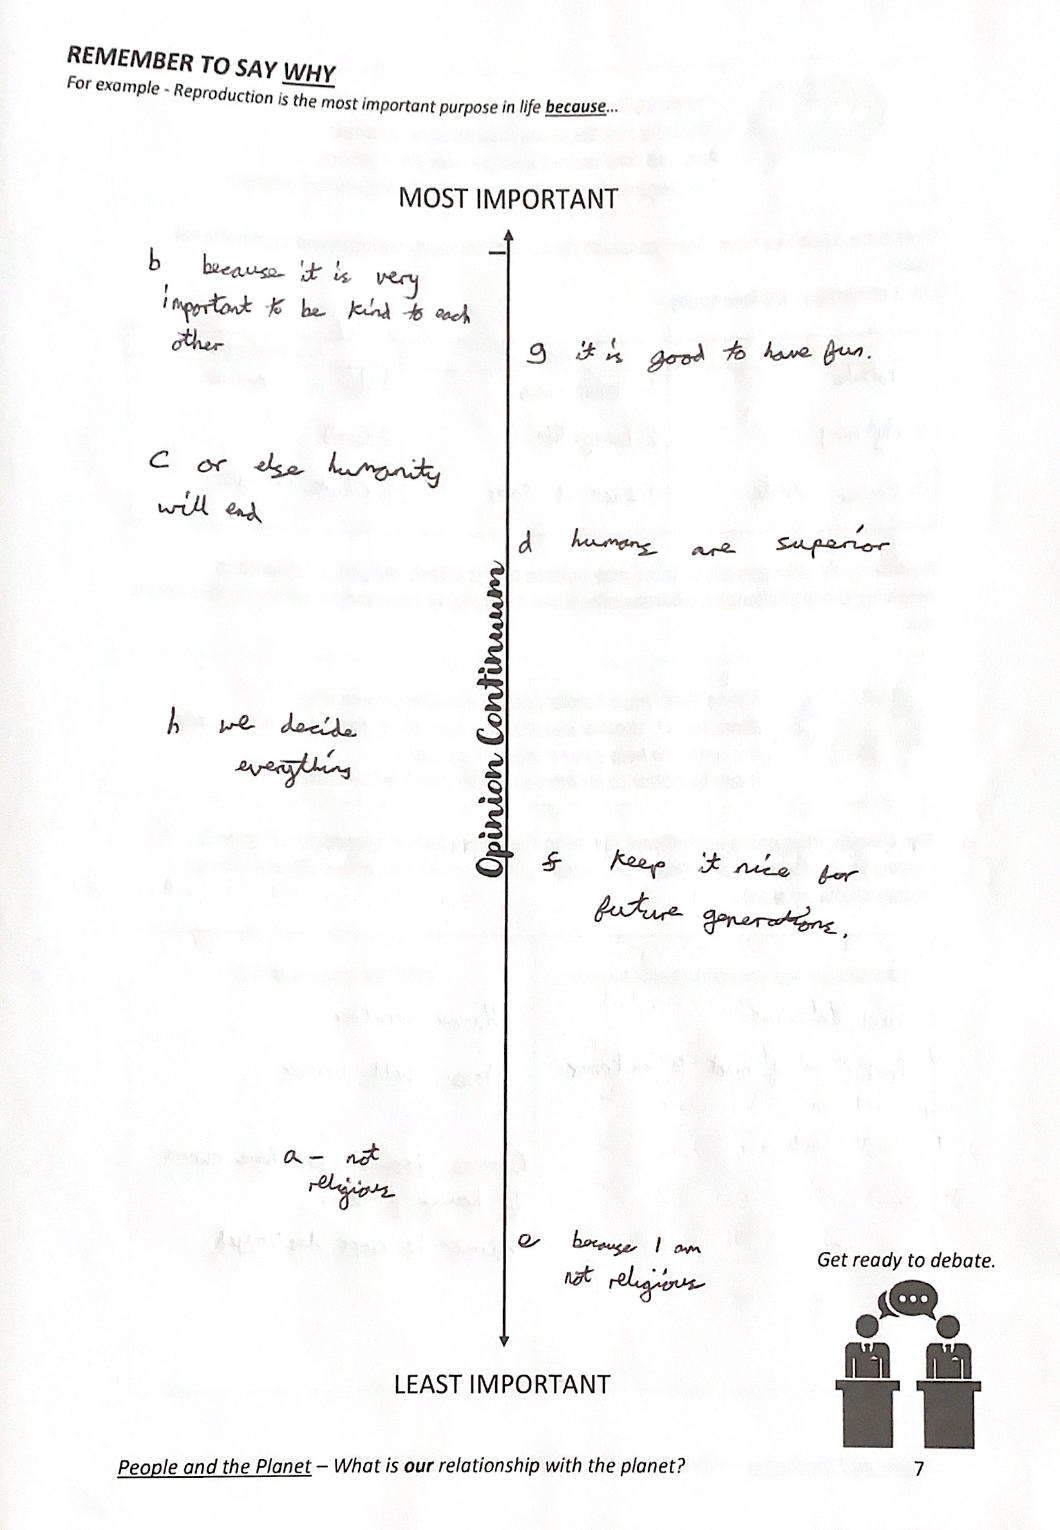 REMEMBER TO SAY WHY
For example - Reproduction is the most important purpose in life because...
MOST IMPORTANT
b because it is very
important to be kind to each
other
g it is good to have fun.
c or else humanity
will end
d humans are superior
Opinion Continuum
h we decide
everything
f keep it nice for
future generations.
a - not
religious
e because I am
not religious
Get ready to debate.
LEAST IMPORTANT
People and the Planet – What is our relationship with the planet?
7